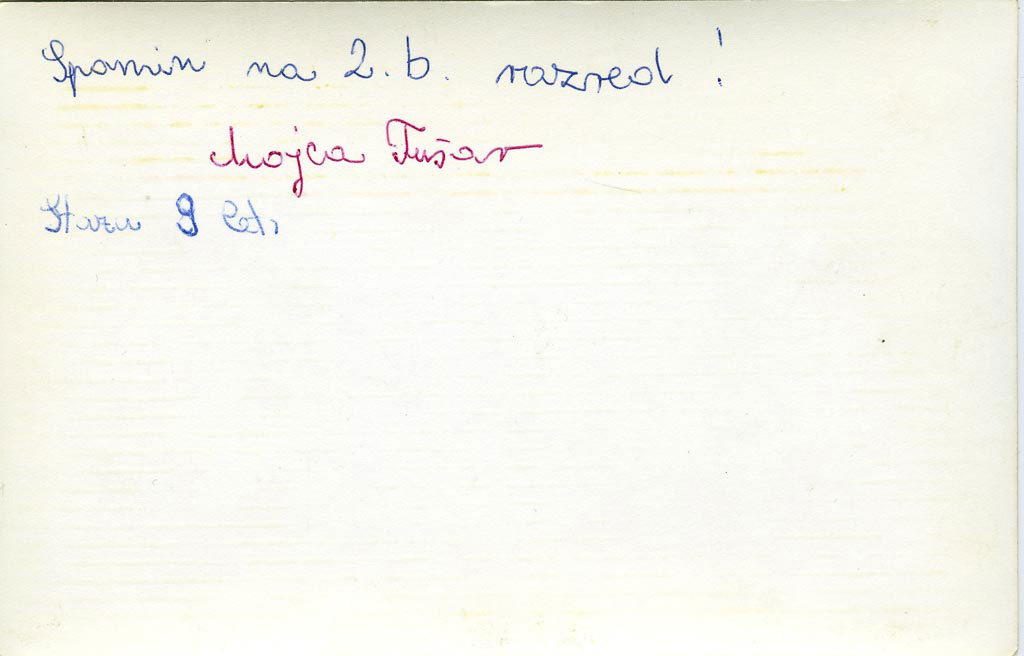 Spomin na 2. b. razred!
Mojca Tušar
Stara 9 let.